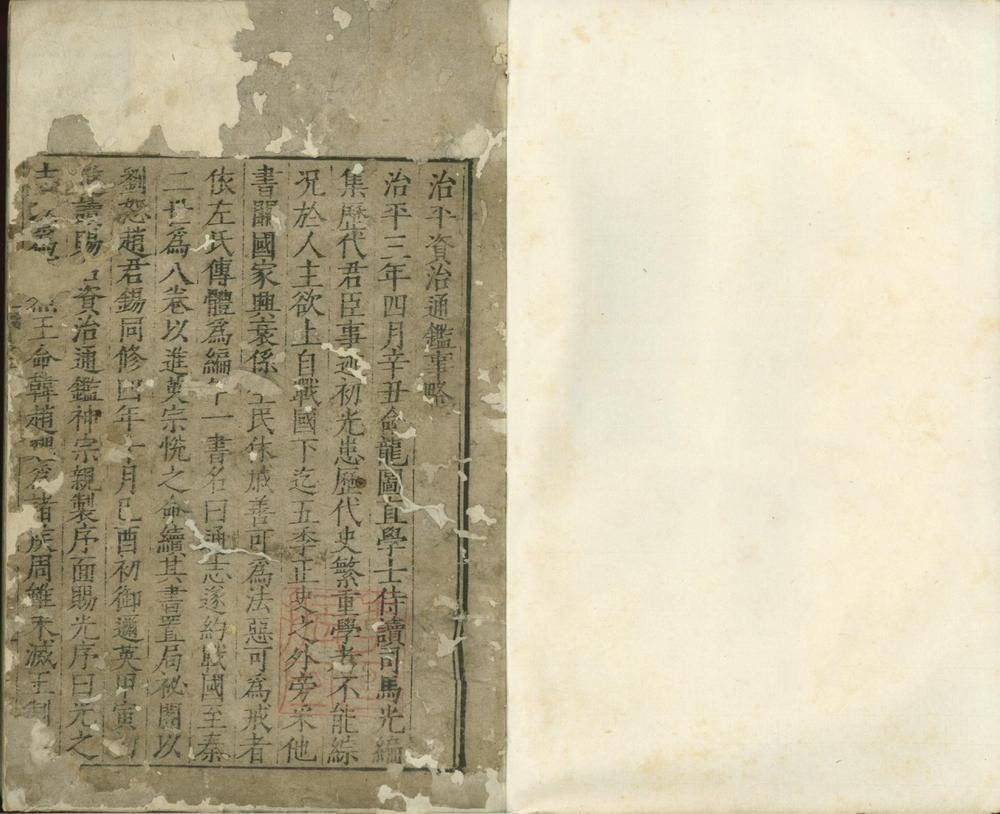 治平資治通鑑事略
治平三年四月辛丑命龍圖直學士侍讀司馬光編
集歷代君臣事迹初光患歷代史繁重學者不能綜
况於人主欲上自戰國下迄五季正史之外旁采他
書關國家興衰係民休戚善可為法惡可為戒者
依左氏傳體為編年一書名曰通志遂約戰國至秦
二世為八卷以進英宗悅之命續其書置局祕閣以
劉恕趙君錫同修四年十月己酉初御邇英甲寅初
讀賜名資治通鑑神宗親製序面賜光序曰光之
王命韓趙魏為諸侯周雖未滅王制